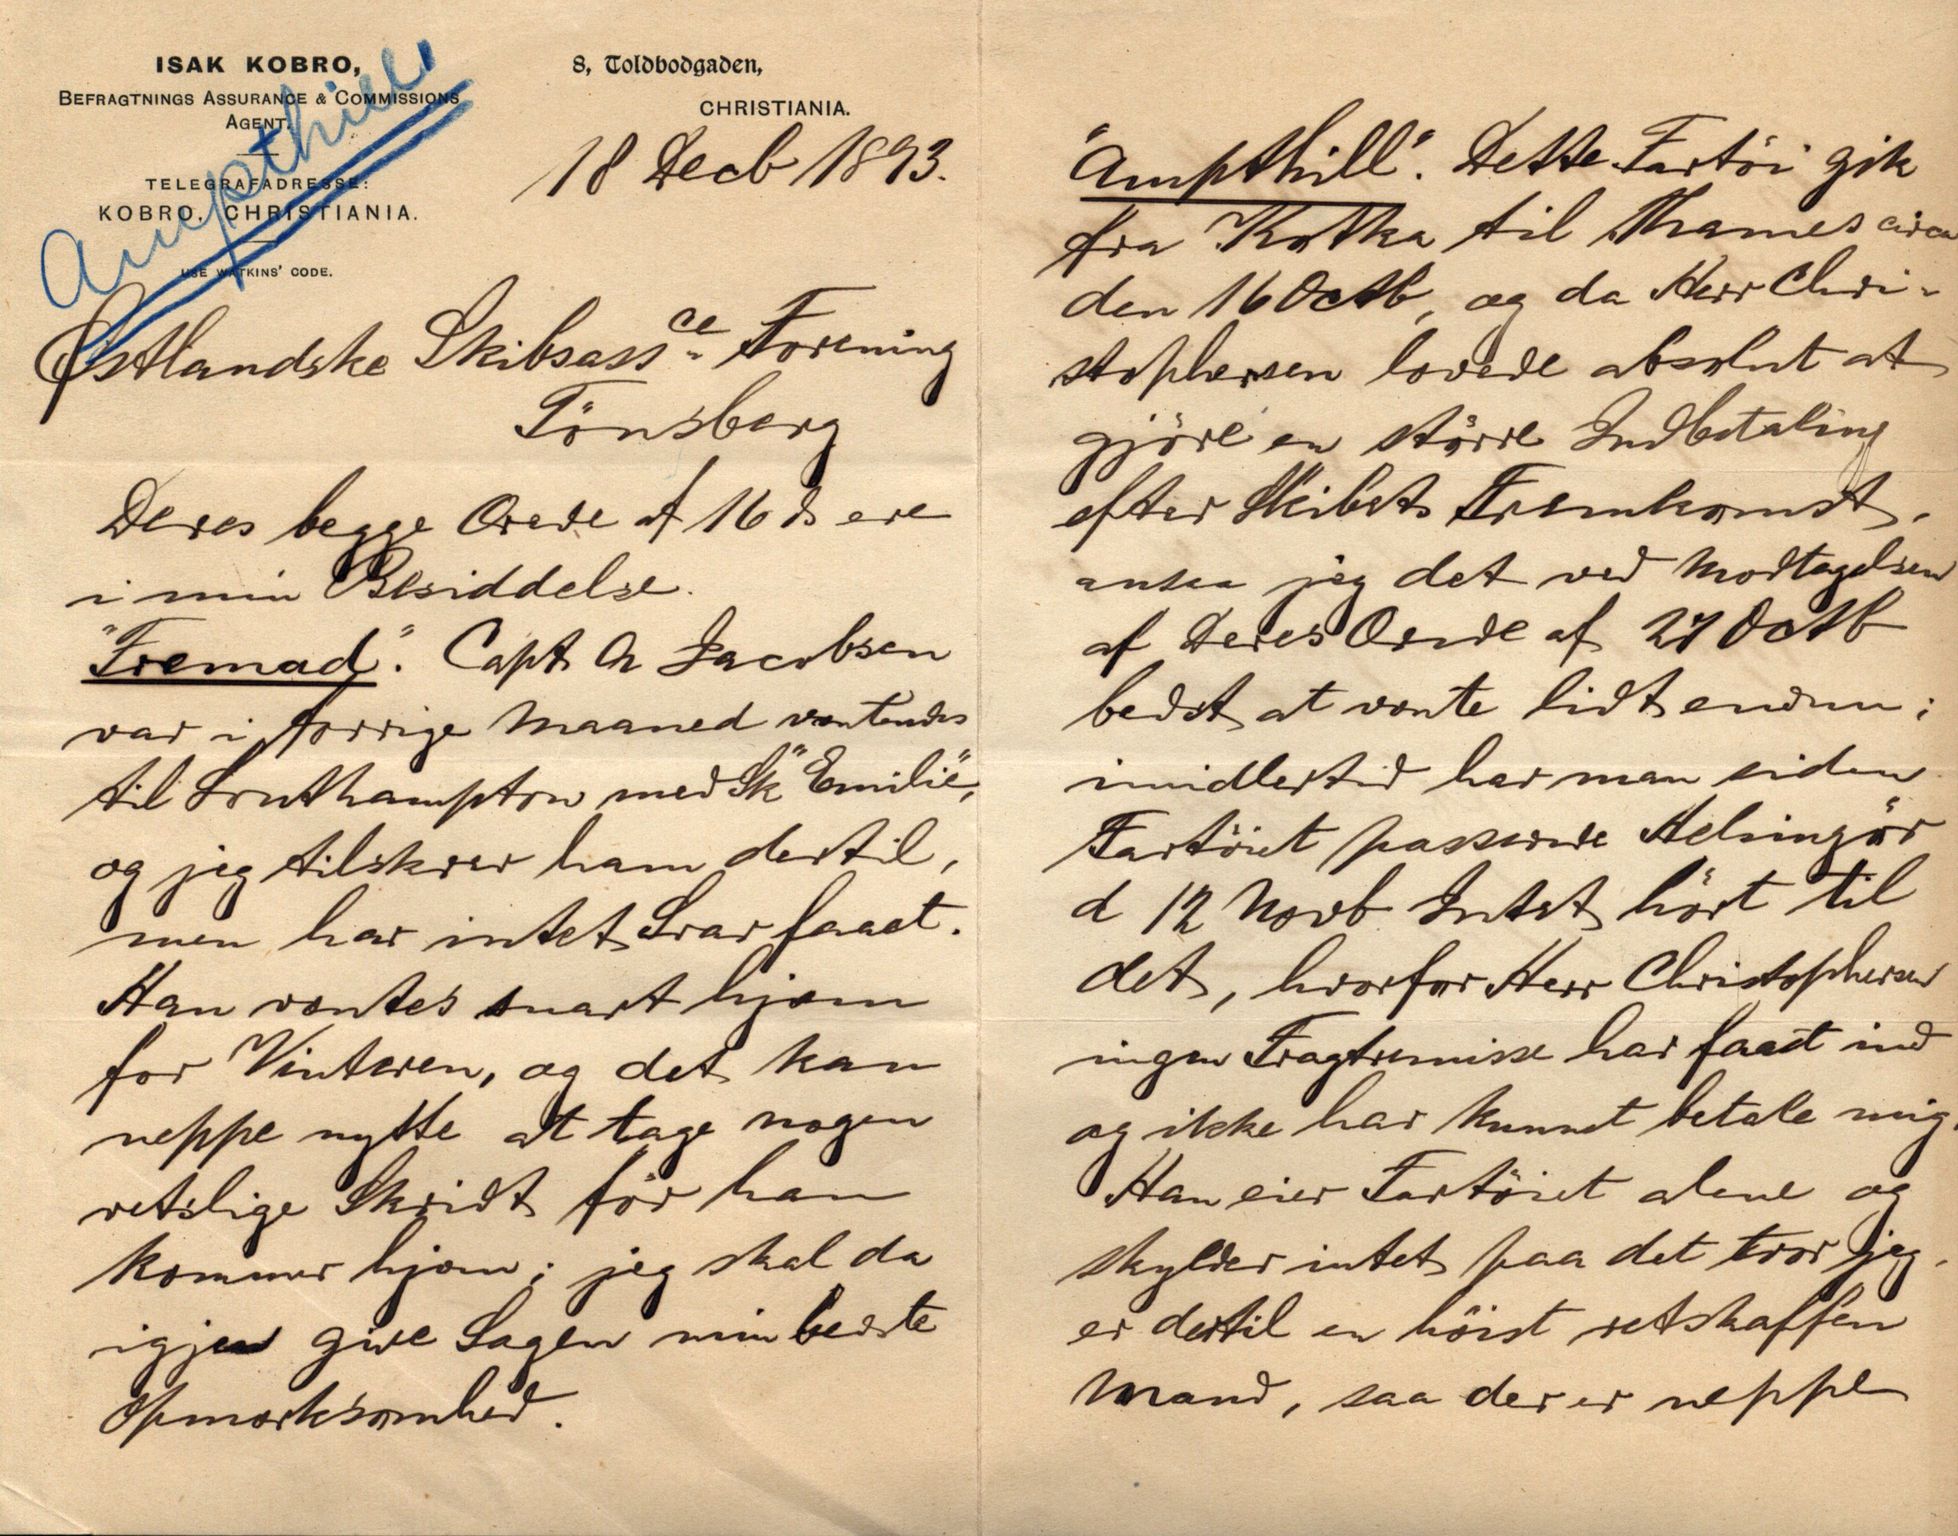 ISAK KOBRO,
BEFRAGTNINGS ASSURANCE & COMMISSIONS
AGENT.
TELEGRAFADRESSE:
KOBRO, CHRISTIANIA.
USE WATKINS' CODE.
Ampthill
8, Toldbodgaden,
CHRISTIANIA.
18 Decb 1893.
Østlandske Skibsassce Forening
Tönsberg
Deres begge Ærede af 16 ds ere
i min Besiddelse.
"Fremad". Capt A Jacobsen
var i forrige Maaned ventendes
til Southampton med Sk "Emilie",
og jeg tilskrev ham dertil,
men har intet Svar faaet.
Han ventes snart hjem
for Vinteren, og det kan
neppe nytte at tage nogen
retslige Skridt för han
kommer hjem; jeg skal da
igjen give Sagen min bedste
Opmærksomhed.
"Ampthill". Dette Fartöi gik
fra Kotka til Thames circa
den 16 Octb, og da Herr Chri-
stophersen lovede absolut at
gjöre en större Indbetaling
efter Skibets Fremkomst,
ansaa jeg det ved Modtagelsen
af Deres Ærede af 27 Octb
bedst at vente lidt endnu;
imidlertid har man siden
Fartöiet passerede Helsingör
d 12 Novb Intet hört til
det, hvorfor Herr Christophersen
ingen Fragtremisse har faaet ind
og ikke har kunnet betale mig.
Han eier Fartöiet alene og
skylder intet paa det tror jeg,
er dertil en höist retskaffen
Mand, saa der er neppe